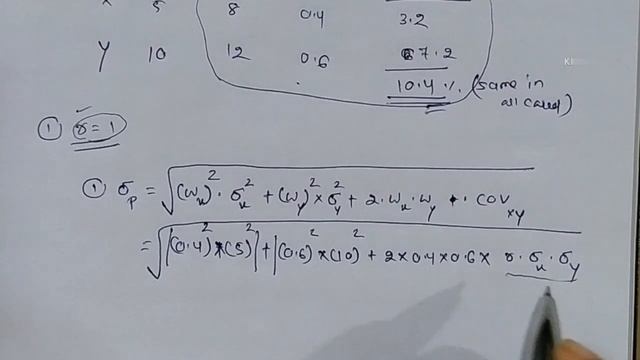 5 8 0.4 3.2
Y 10 12 0.6 7.2
10.4 % (same in all cases)
① r = 1
① σp = √(Wx)² · σx² + (Wy)² × σy² + 2 · Wx · Wy · COVxy
= √(0.4)² × (5)² + (0.6)² × (10)² + 2 × 0.4 × 0.6 × r · σx · σy